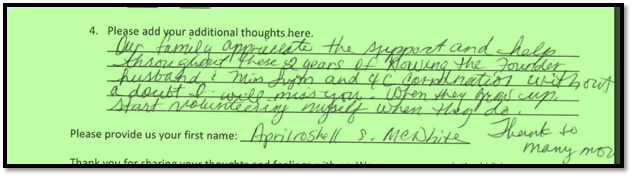 4. Please add your additional thoughts here.
Our family appreciate the support and help
throughout these 2 years of knowing the Founder
husband & Miss and 4C without
a doubt I will miss you. When they grow up
start volunteering myself when they do.
Please provide us your first name: Aprilroshell S. McWhite Thank so
many mor
Thank you for sharing your thoughts and feelings with us.